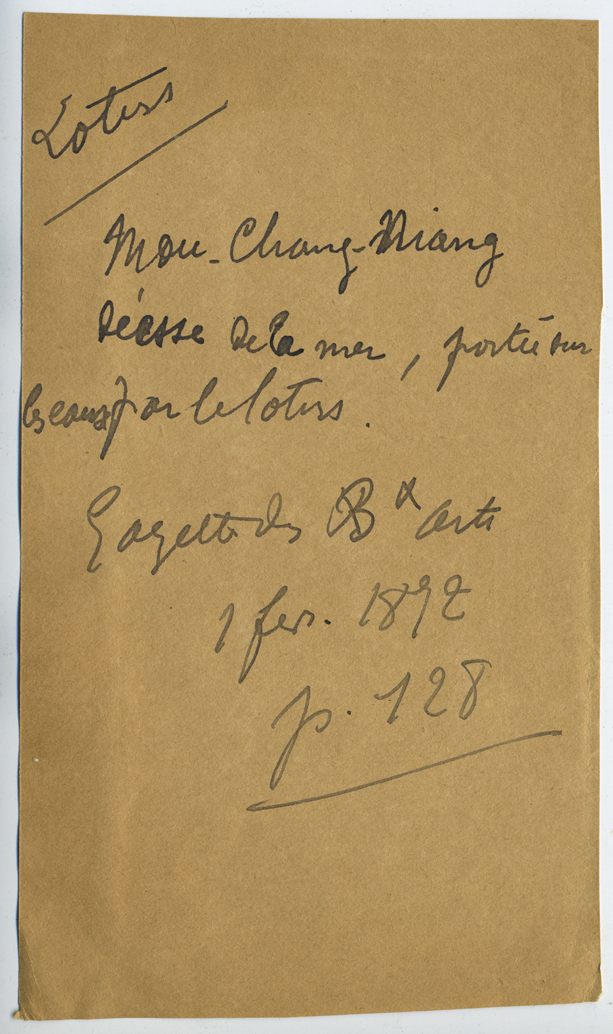 Lotus
Mou-Chang-Niang
déesse de la mer, portée sur
les eaux par le lotus.
Gazette des Bx arts
1 fev. 1892
p. 128